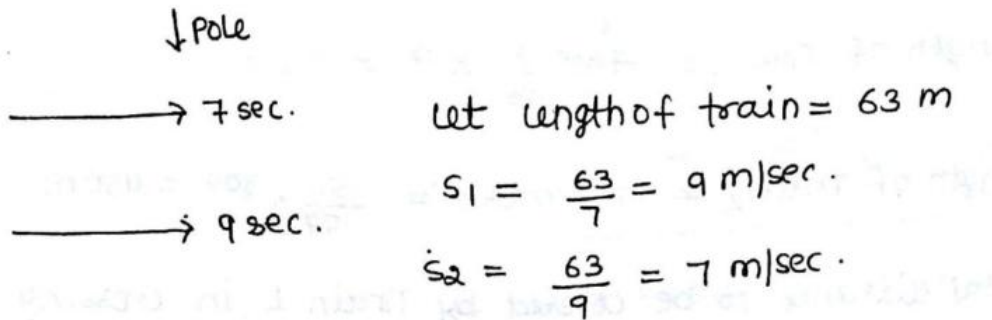 ↓ Pole
→ 7 sec.
let length of train = 63 m
S1 = 63/7 = 9 m/sec.
→ 9 sec.
S2 = 63/9 = 7 m/sec.